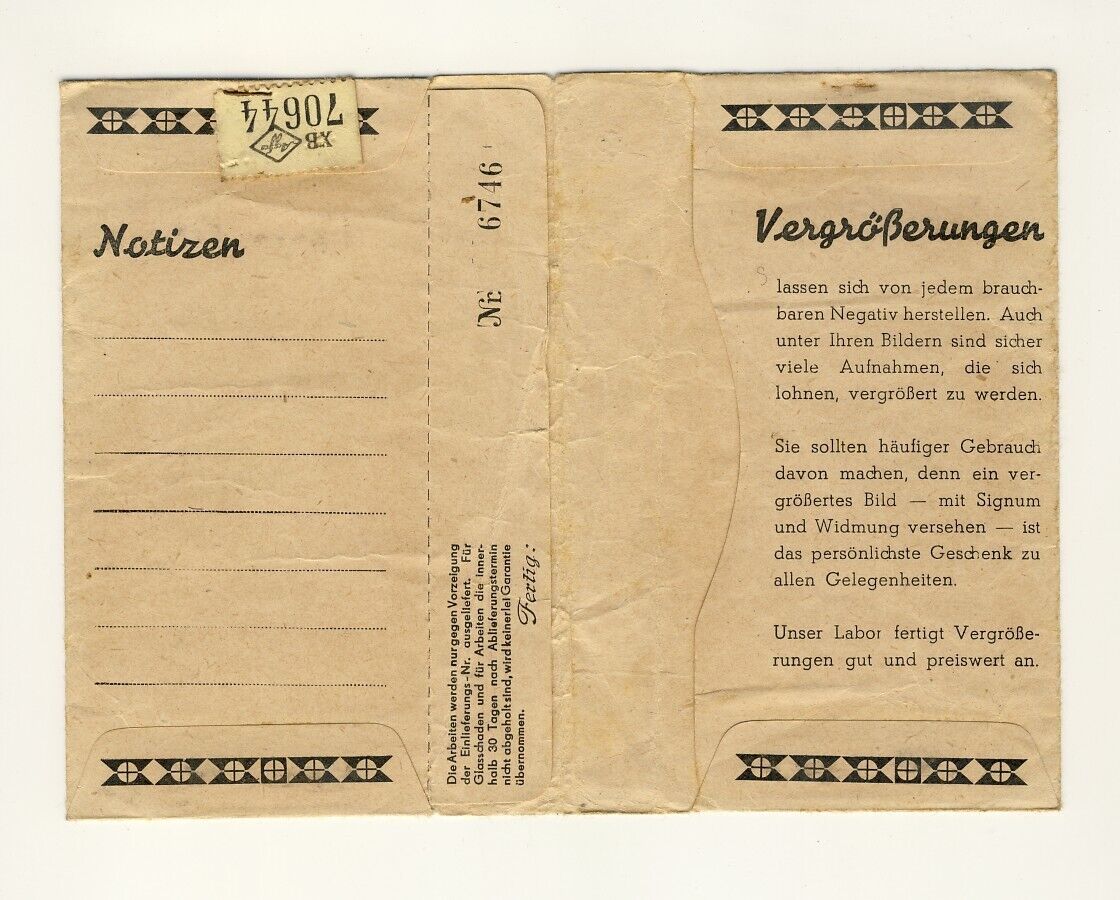 70644
Agfa
XB
Notizen
Nr. 6746
Die Arbeiten werden nur gegen Vorzeigung
der Einlieferungs-Nr. ausgeliefert. Für
Glasschaden und für Arbeiten die inner-
halb 30 Tagen nach Ablieferungstermin
nicht abgeholt sind, wird keinerlei Garantie
übernommen.
Fertig:
Vergrößerungen
lassen sich von jedem brauch-
baren Negativ herstellen. Auch
unter Ihren Bildern sind sicher
viele Aufnahmen, die sich
lohnen, vergrößert zu werden.
Sie sollten häufiger Gebrauch
davon machen, denn ein ver-
größertes Bild — mit Signum
und Widmung versehen — ist
das persönlichste Geschenk zu
allen Gelegenheiten.
Unser Labor fertigt Vergröße-
rungen gut und preiswert an.